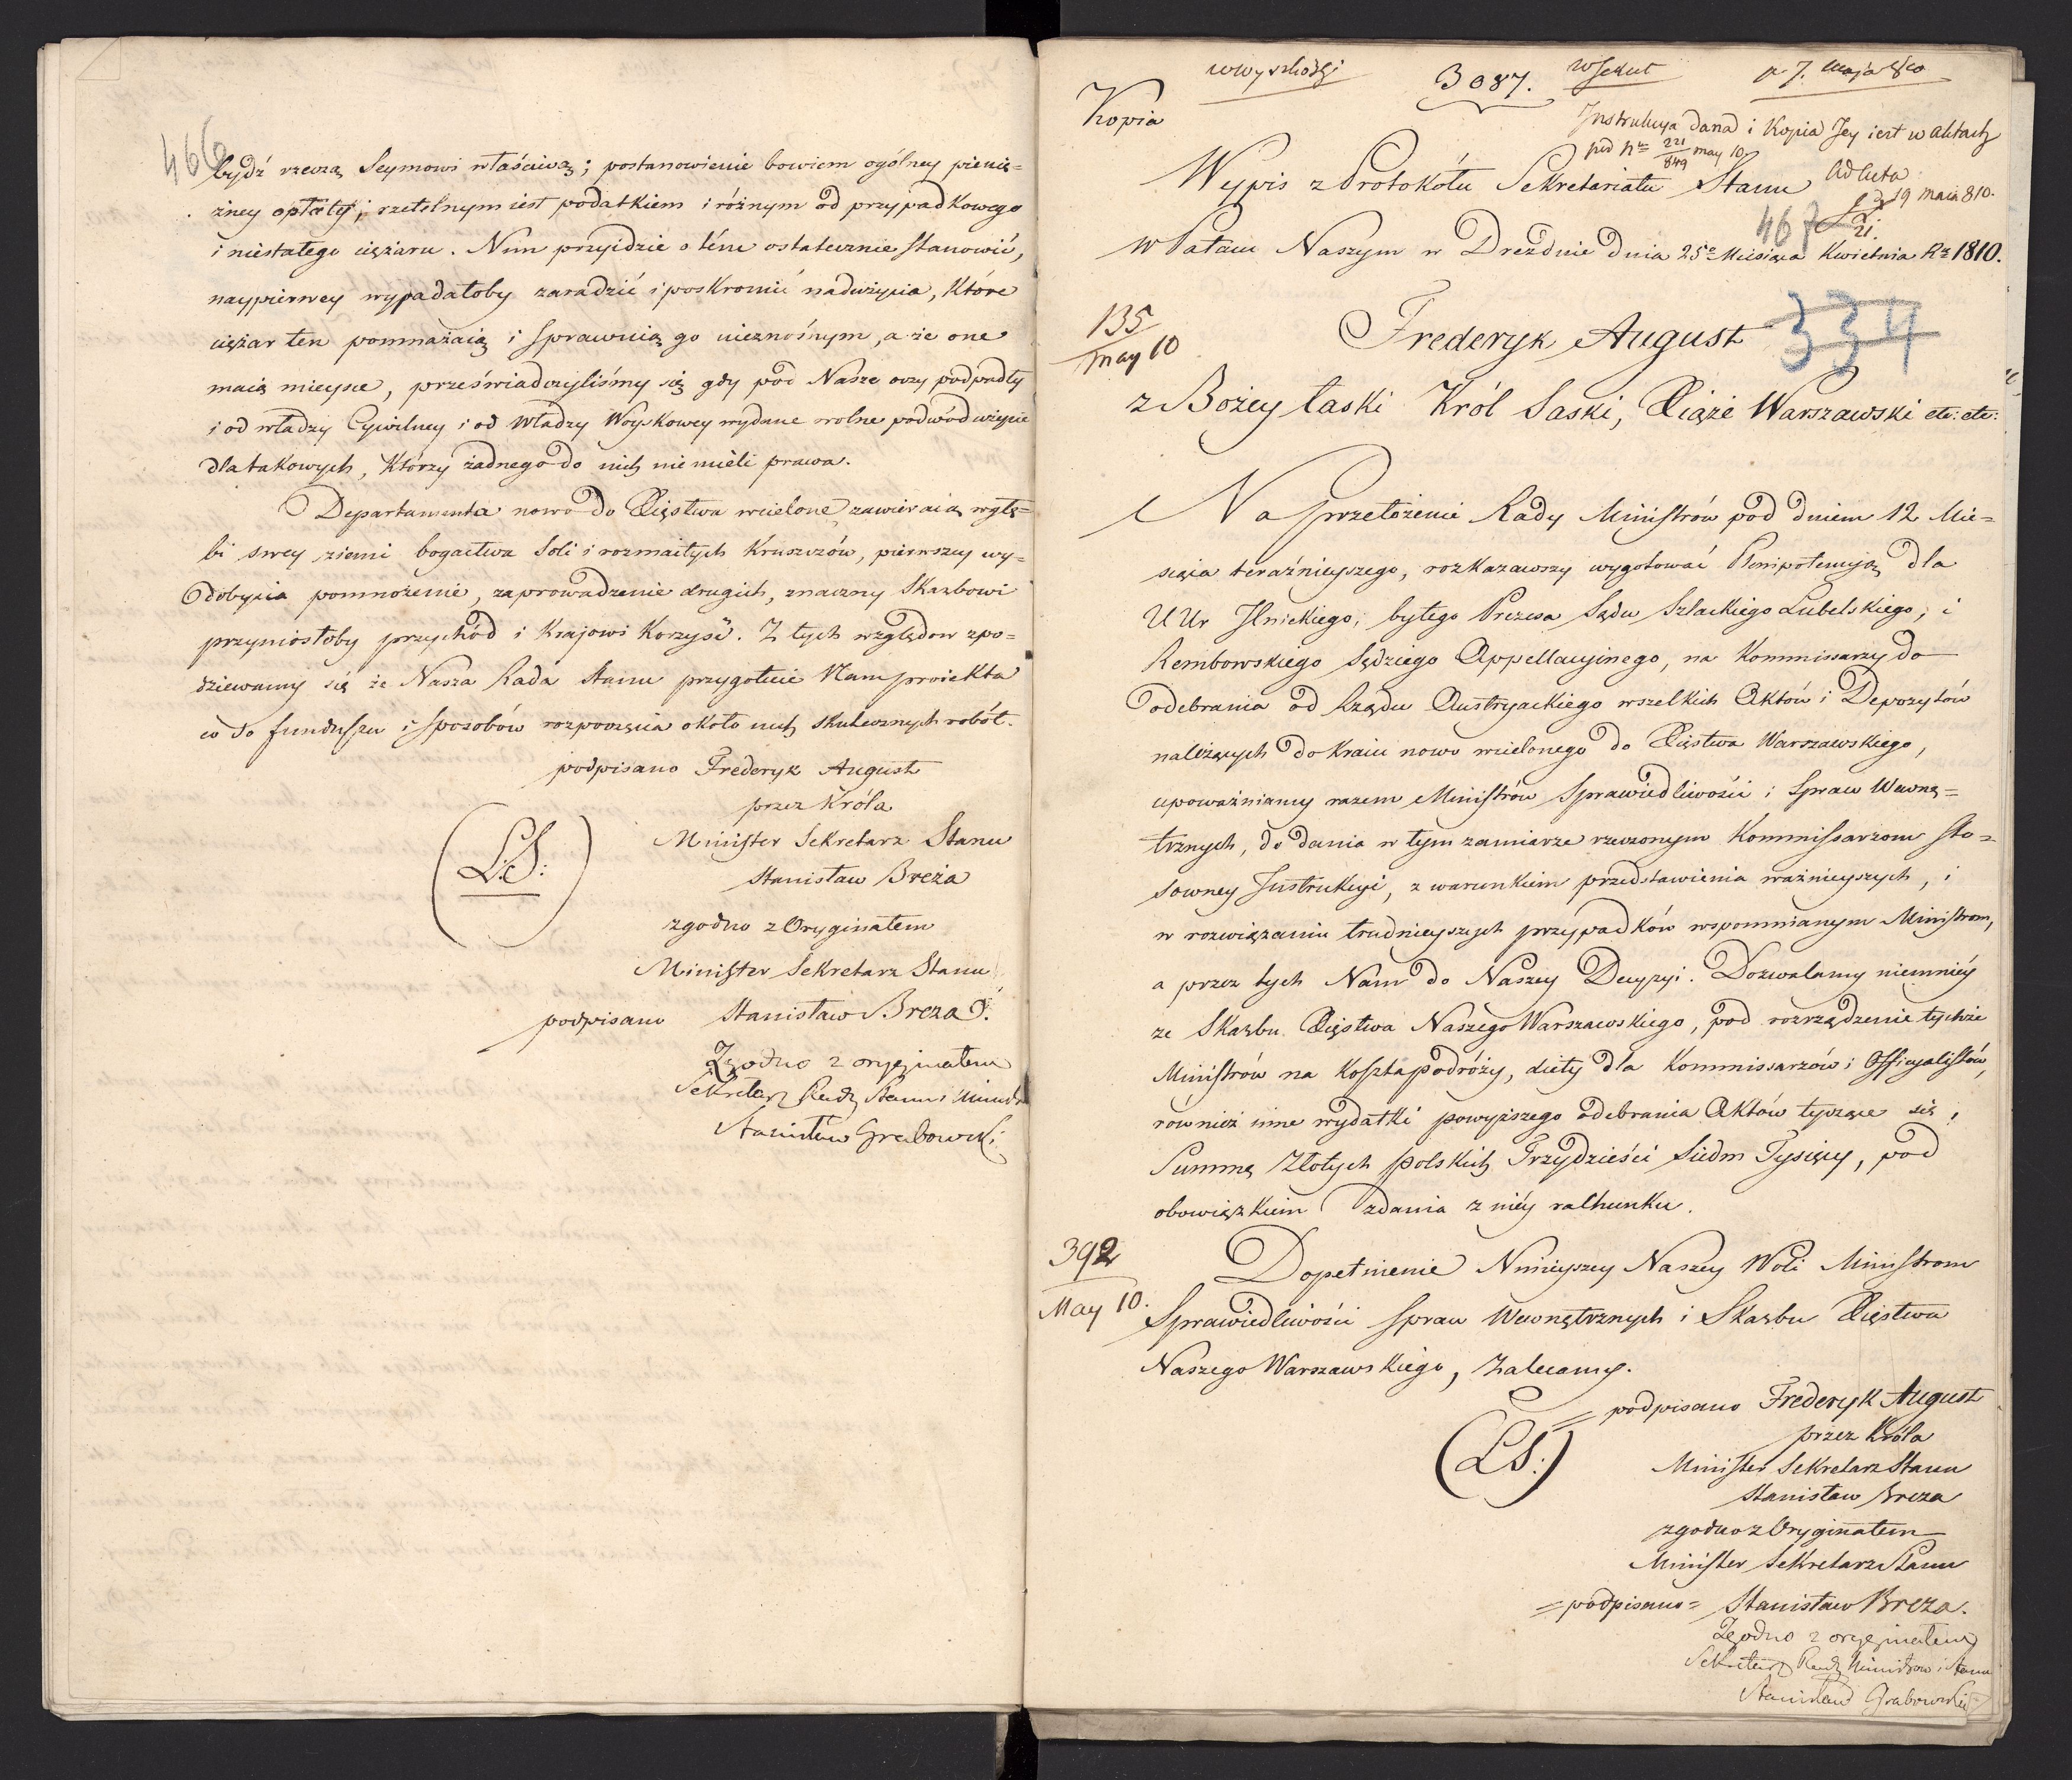 466
bydź rzeczą Seymowi właściwą; postanowienie bowiem ogólney pienię=
żney opłaty, rzetelnym iest podatkiem i różnym od przypadkowego
i niestałego ciężaru. Nim przyidzie o tém ostatecznie stanowić,
naypierwey wypadałoby zaradzić i poskromić nadużycia, które
ciężar ten pomnażaią i sprawuią go nieznośnym, a że one
maią mieysce, przeświadczyliśmy się gdy pod Nasze oczy podpadły
i od władzy Cywilney i od Władzy Woyskowey wydane wolne podwód użycie
dla takowych, którzy żadnego do nich nie mieli prawa.
Departamenta nowo do Xięstwa wcielone, zawieraią w głę=
bi swey ziemi bogactwa Soli i rozmaitych Kruszców, pierwszey wy=
dobycia pomnożenie, zaprowadzenie drugich, znaczny Skarbowi
przyniosłoby przychód i Krajowi Korzyść. Z tych względow spo=
dziewamy się że Nasza Rada Stanu przygotuie Nam proiekta
co do funduszu i sposobów rozpoczęcia około nich skutecznych robót.
podpisano Frederyk August
przez Króla
Minister Sekretarz Stanu
(L.S:)
Stanisław Breza
zgodno z Oryginałem
Minister Sekretarz Stanu
podpisano Stanisław Breza.
Zgodno z oryginałem
Sekretarz Rady Stanu i Ministr
Stanisław Grabowski
3087.
d. 7. Maja 810
Kopia
Instrukcya dana i Kopia Jey iest w aktach
pod Nr 221/849 may 10.
Wypis z Protokółu Sekretariatu Stanu
Ad Acta
d 19 Maia 810.
21.
467
w Pałacu Naszym w Dreźnie Dnia 25o Miesiąca Kwietnia Rs 1810.
135
may 10
Frederyk August
334
z Bożey łaski Król Saski, Xiąże Warszawski etc: etc:
Na przełożenie Rady Ministrów pod dniem 12 Mie=
siąca teraźnieyszego, rozkazawszy wygotować Plenipotencyą dla
UUr Ilnickiego, byłego Prezesa Sądu Szlackiego Lubelskiego, i
Rembowskiego Sędziego Appellacyinego, na Kommissarzy do
odebrania od Rządu Austryackiego wszelkich Aktów i Depozytów
należących do Kraiu nowo wcielonego do Xięstwa Warszawskiego,
upoważniamy razem Ministrów Sprawiedliwości i Spraw Wewnę=
trznych, do dania w tym zamiarze rzeczonym Kommissarzom sto=
sowney Instrukcyi, z warunkiem przedstawienia ważnieyszych, i
w rozwiązaniu trudnieyszych przypadków wspomnianym Ministrom,
a przez tych Nam do Naszey Decyzyi. Dozwalamy niemniéy
ze Skarbu Xięstwa Naszego Warszawskiego, pod rozrządzenie tychże
Ministrów na Koszta podróży, diety dla Kommissarzów i Officyalistów,
również inne wydatki powyższego odebrania Aktów tyczące się,
Summę Złotych Polskich Trzydzieści Siedm Tysięcy, pod
obowiązkiem zdania z niéy rachunku.
392
May 10.
Dopełnienie Ninieyszey Naszey Woli Ministrom
Sprawiedliwości Spraw Wewnętrznych i Skarbu Xięstwa
Naszego Warszawskiego, Zalecamy.
podpisano Frederyk August
przez Króla
(LS:)
Minister Sekretarz Stanu
Stanisław Breza
zgodno z Oryginałem
Minister Sekretarz Stanu
=podpisano= Stanisław Breza.
Zgodno z oryginałem
Sekretarz Rady Ministrow i Stanu
Stanisław Grabowski